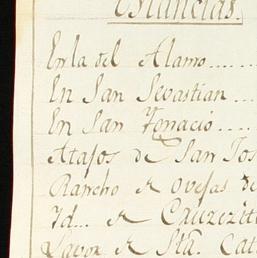 Estancias.
En la del Alamo.......
En San Sevastian ....
En San Ygnacio .....
Atajos de San Jos
Rancho de ovejas de
Yd... de Cauzezit
Lavor de Sta. Cat